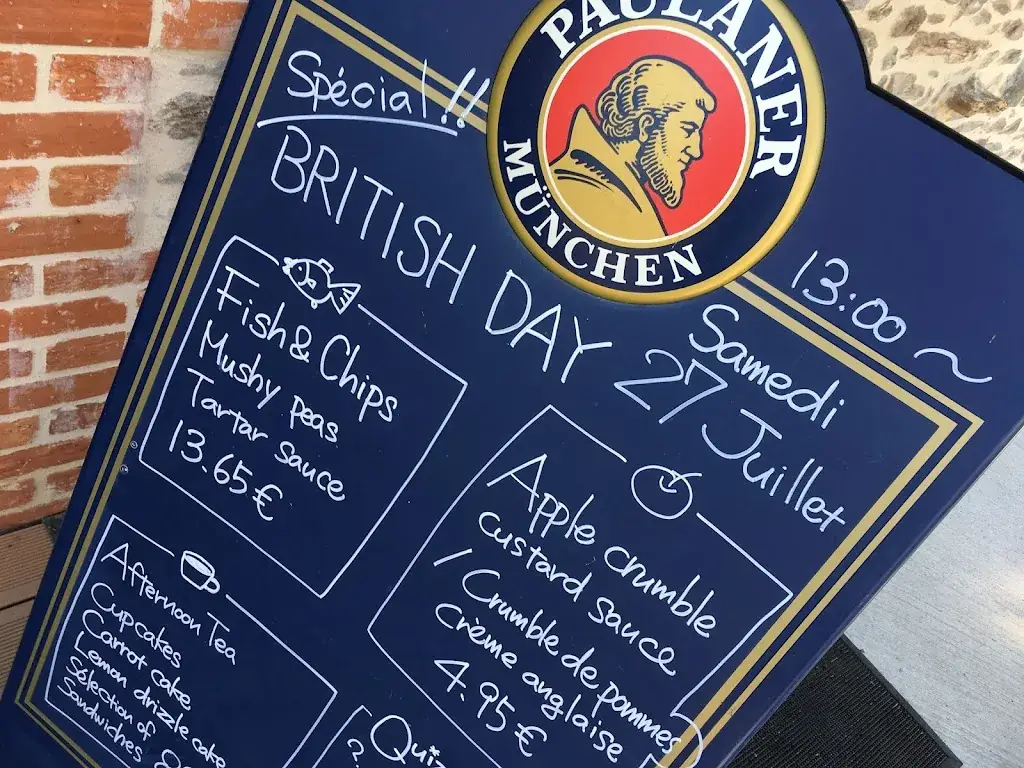 PAULANER
MÜNCHEN
Spécial!!
BRITISH DAY
13:00~
Samedi
27 Juillet
Fish & Chips
Mushy peas
Tartar sauce
13.65€
Apple crumble
custard sauce
/ Crumble de pommes
Crème anglaise
4.95€
Afternoon Tea
Cupcakes
Carrot cake
Lemon drizzle cake
Sélection of
Sandwiches
Quiz
?